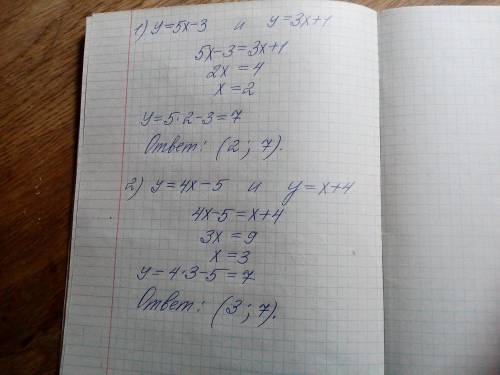 1) y=5x-3 и y=3x+1
5x-3=3x+1
2x=4
x=2
y=5·2-3=7
Ответ: (2; 7).
2) y=4x-5 и y=x+4
4x-5=x+4
3x=9
x=3
y=4·3-5=7
Ответ: (3; 7).